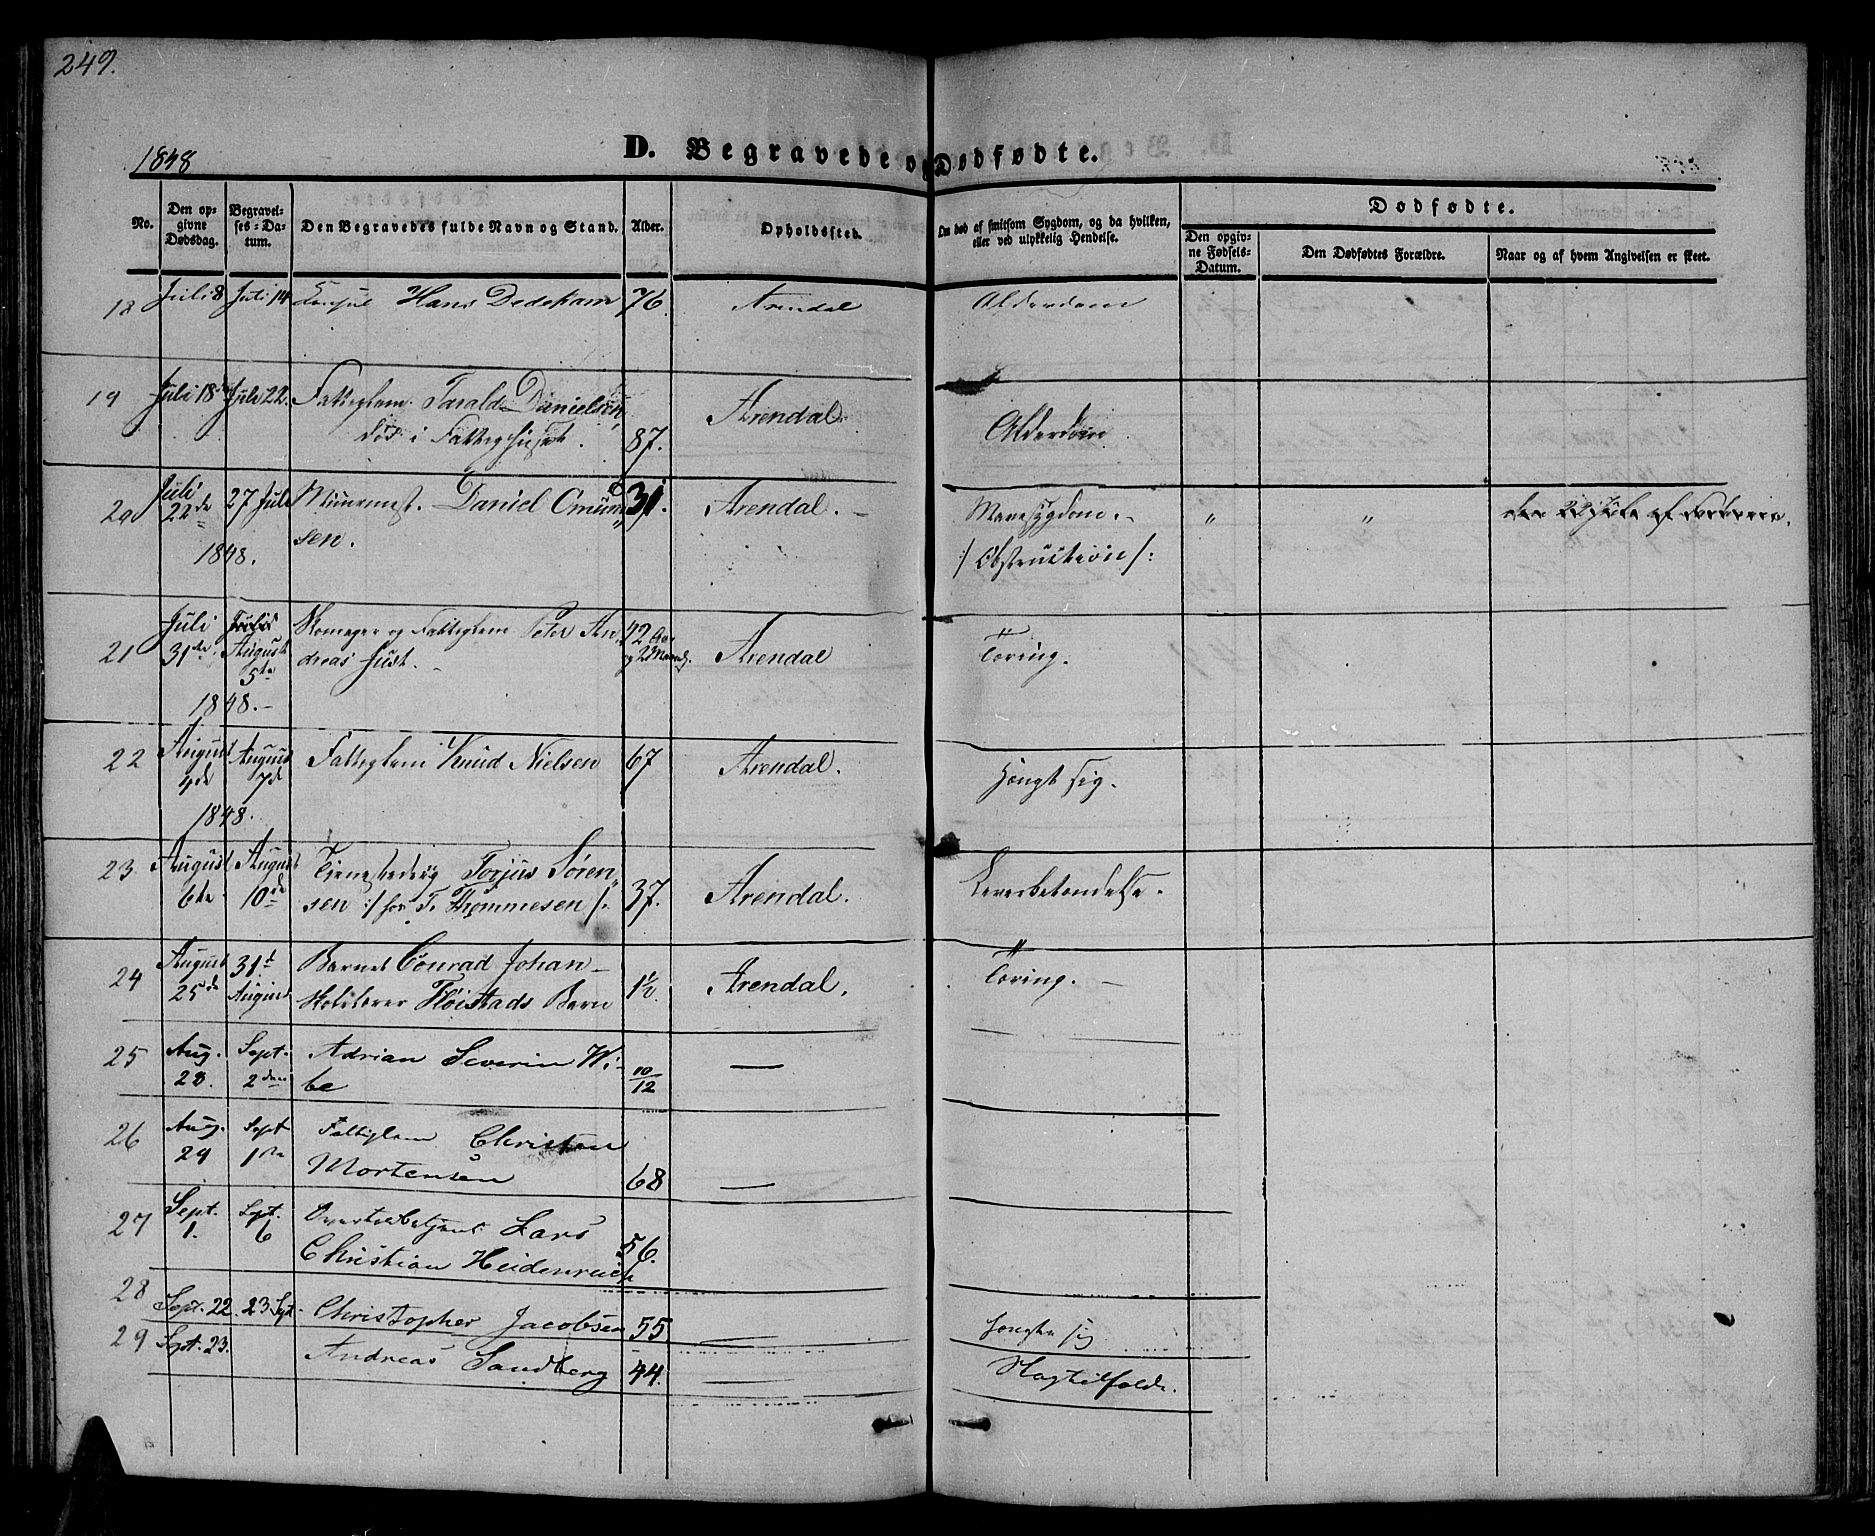 249.
1848
D. Begravede og Dødfødte.
No. Den opgivne Dødsdag. Begravelses-Datum. Den Begravedes fulde Navn og Stand. Alder. Opholdssted. Om død af smitsom Sygdom, og da hvilken, eller ved ulykkelig Hendelse.
Dødfødte.
Den opgivne Fødsels-Datum. Den Dødfødtes Forældre. Naar og af hvem Angivelsen er skeet.
18 Juli 8 Juli 14 Hans Dedekam 76. Arendal Alderdom
19 Juli 18 Juli 22. Fattiglem. Tarald Danielsen, Arendal.
død i Fattighuset. 87. Alderdom.
20 Juli 22de 27 Juli Muurmest. Daniel Omund 31. Arendal. Mavesygdom. " " den 22 Juli af
1848. sen. /Obstruction/:
21 Juli 31te August 5te Skomager og Fattiglem Peter An 42 Aar Arendal Tæring.
dreas Just. og 2 Maaned.
1848.
22 August 4de August 7de Fattiglem Knud Nielsen 67 Arendal. Hængt sig.
1848.
23 August 6te August 10de Tjenestedreng Torjus Sören
sen :/ for T. Thommesen /. 37. Arendal. Leverbetændelse.
24 August 25de 31t August Barnet Conrad Johan
Fløistads Barn 1½. Arendal. Tæring.
25 Aug. 28. Sept. 2den Adrian Severin Wi-
be 10/12 —
26 Aug. 29 Sept 1te Fattiglem Christen
Mortensen 68 —
27 Sept. 1. Sept. 6 Overtoldbetjent Lars
Christian Heidenreich 56.
28 Sept. 22. 23 Sept. Christopher Jacobsen 55 — hængte sig
29 Sept. 23. Andreas Sandberg 44. — Slagtilfælde.